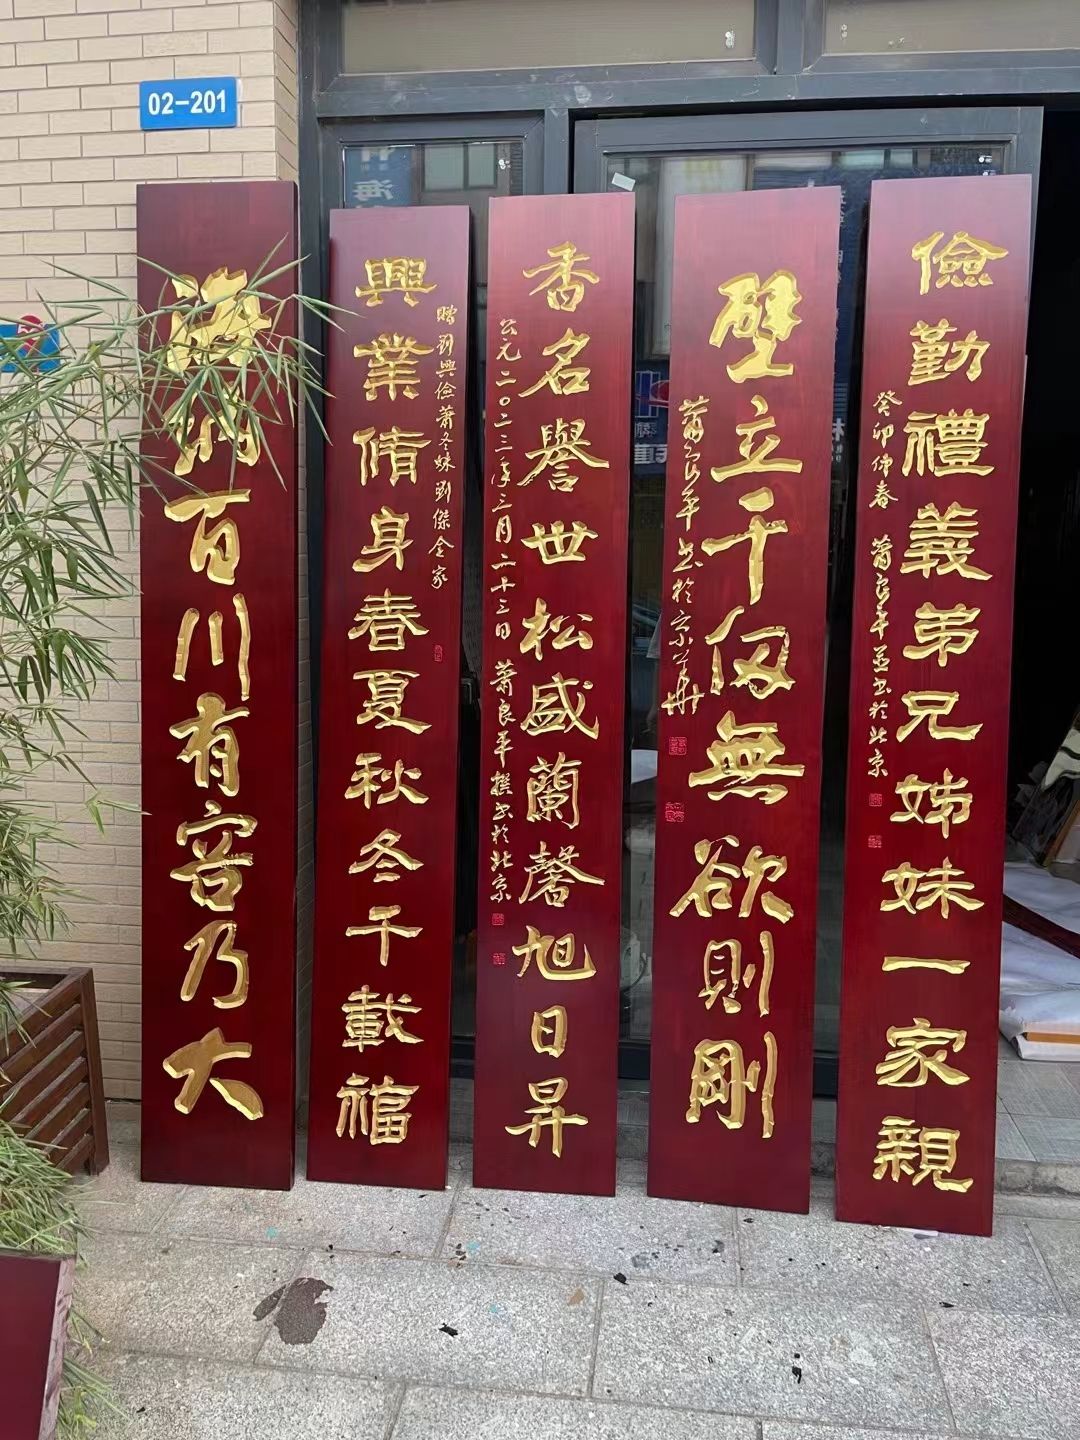 02-201
海納百川有容乃大
興業脩身春夏秋冬千載福
贈劉興儉蕭冬妹劉傑全家
香名譽世松盛蘭馨旭日昇
公元二〇二三年三月二十三日 蕭良平撰書於北京
壁立千仞無欲則剛
蕭良平書於京華
儉勤禮義弟兄姊妹一家親
癸卯仲春 蕭良平並書於北京